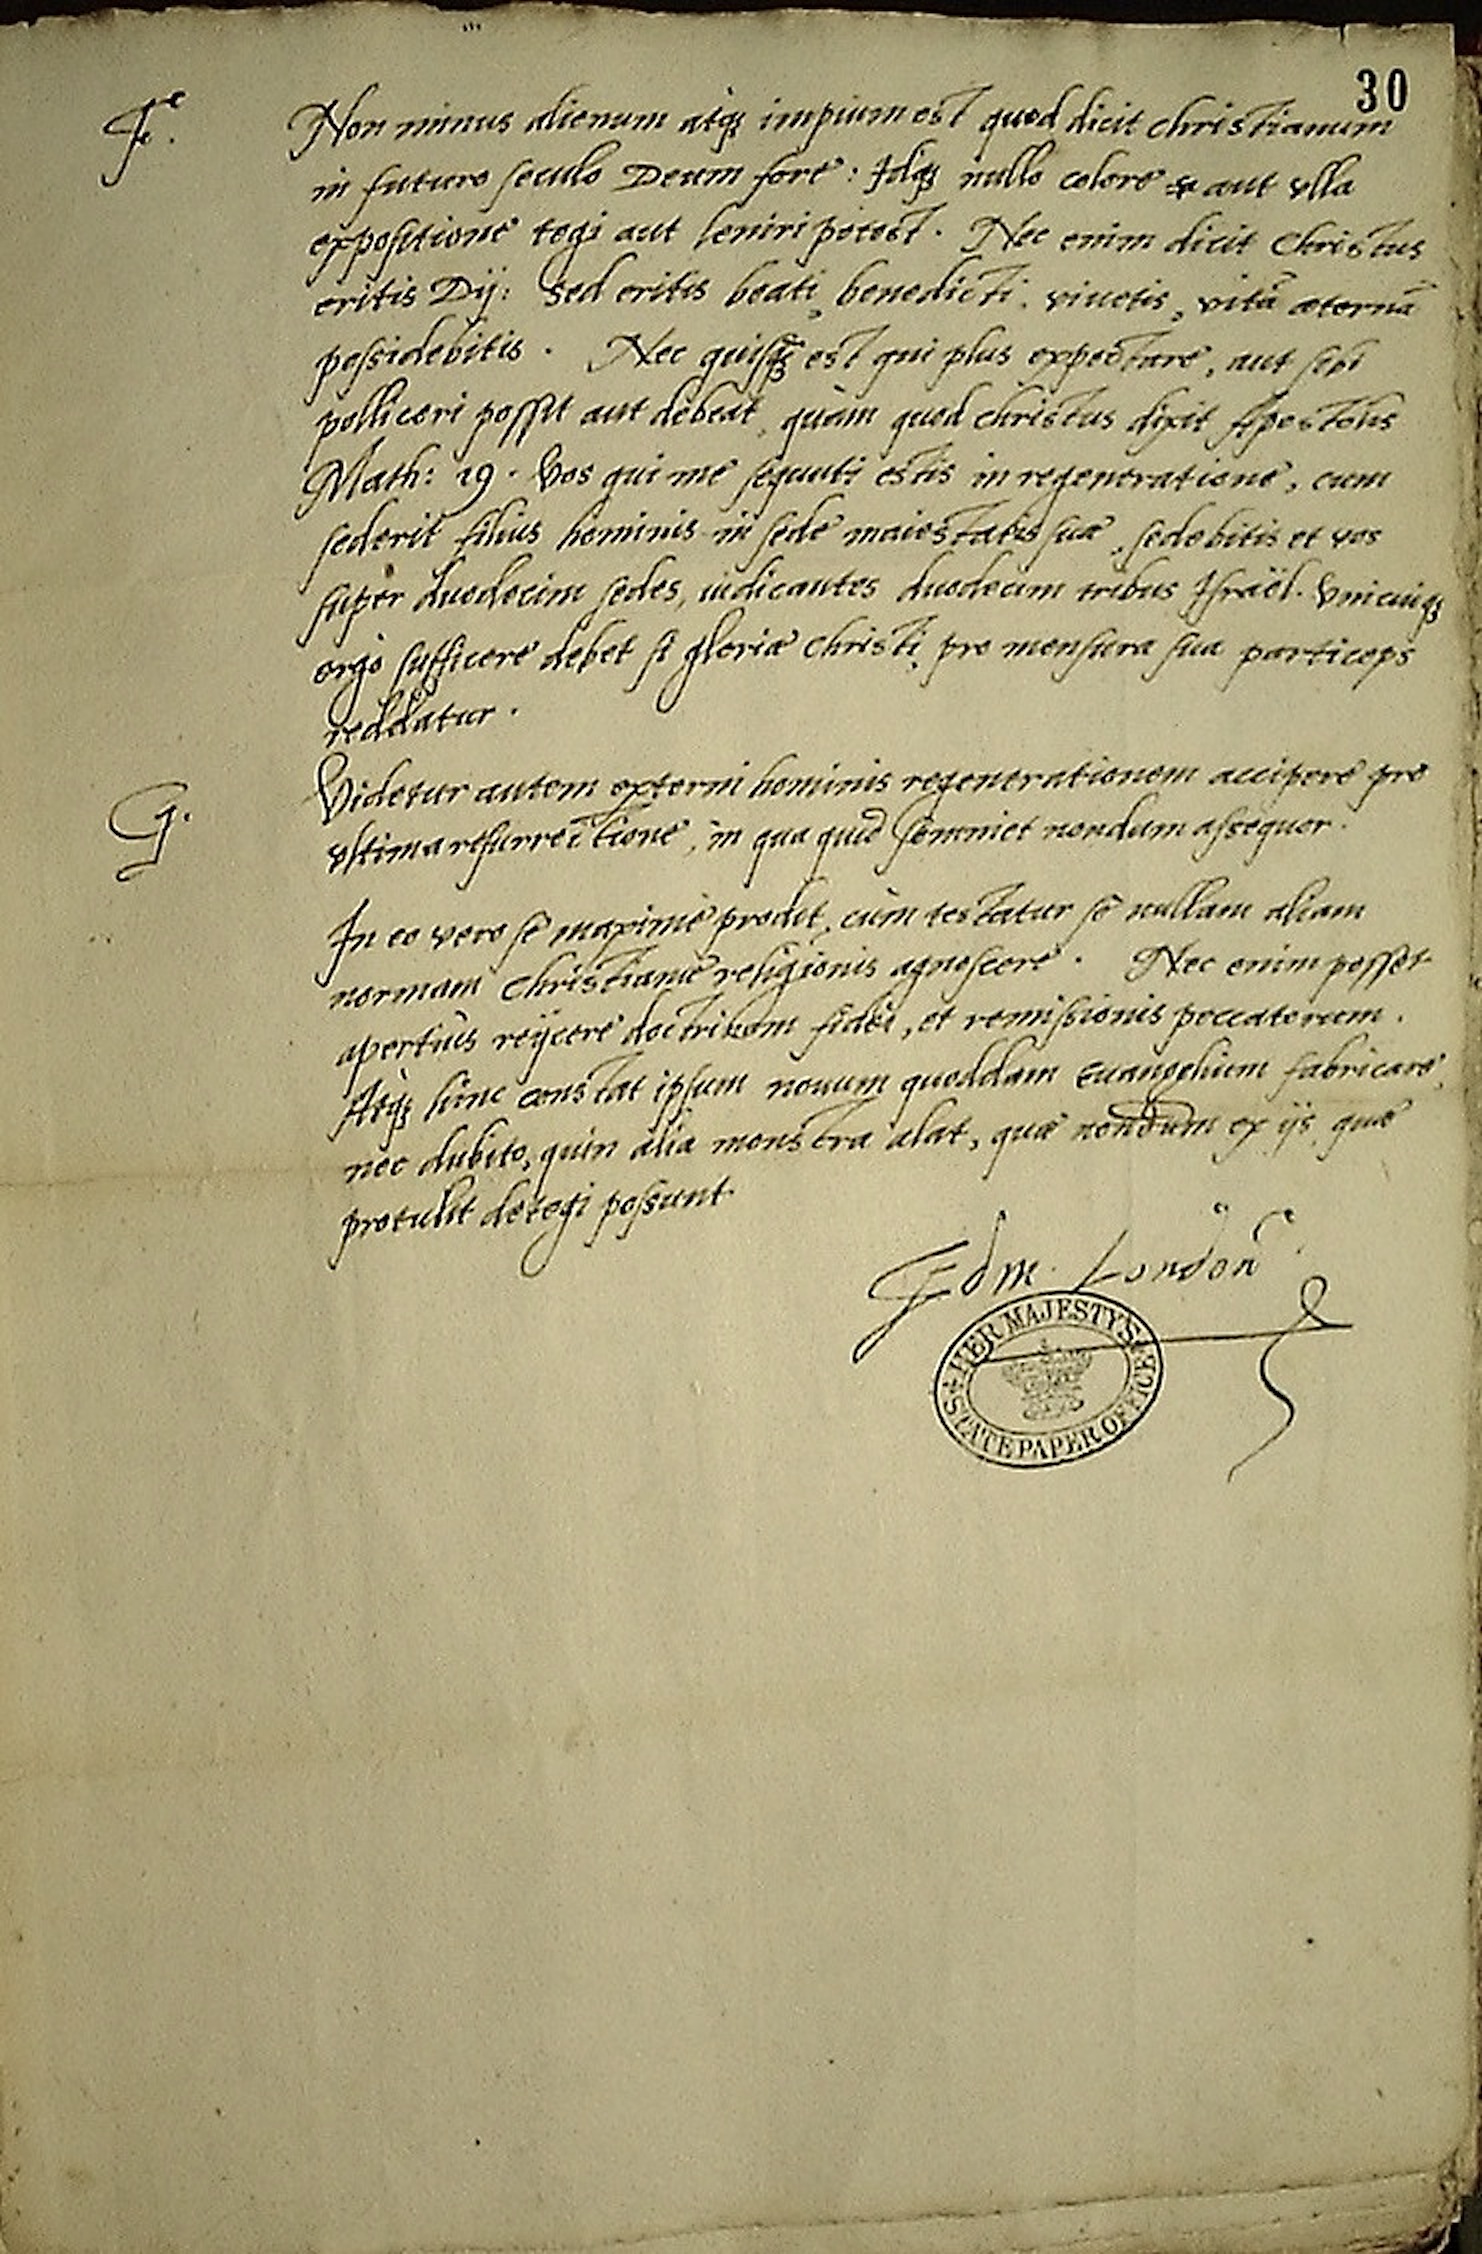 30
F. Non minus alienum atq̣ impium est quod dicit christianum
in futuro seculo Deum fore: Idq̣ nullo colore aut vlla
expositione tegi aut leniri potest. Nec enim dicit Christus
eritis Dij: sed eritis beati, benedicti. viuetis, vitā æternā
possidebitis. Nec quisq̣ est qui plus expectare, aut sibi
polliceri possit aut debeat, quàm quod christus dixit Apostolis
Math: 19. Vos qui me sequuti estis in regeneratione, cum
sederit filius hominis in sede maiestatis suæ, sedebitis et vos
super duodecim sedes, iudicantes duodecim tribus Israël. Vnicuiq̣
ergo sufficere debet si gloriæ christi pro mensura sua particeps
reddatur.
G. Videtur autem externi hominis regenerationem accipere pro
vltima resurrectione, in qua quid somniet nondum assequor.
In eo vero se maxime prodit, cùm testatur se nullam aliam
normam christianæ religionis agnoscere. Nec enim posset
apertius reijcere doctrinam fidei, et remissionis peccatorum.
Atq̣ hinc constat ipsum nouum quoddam euangelium fabricare,
nec dubito, quin alia monstra alat, quæ nondum ex ijs quæ
protulit detegi possunt
Edm. London
HER MAJESTY'S STATE PAPER OFFICE